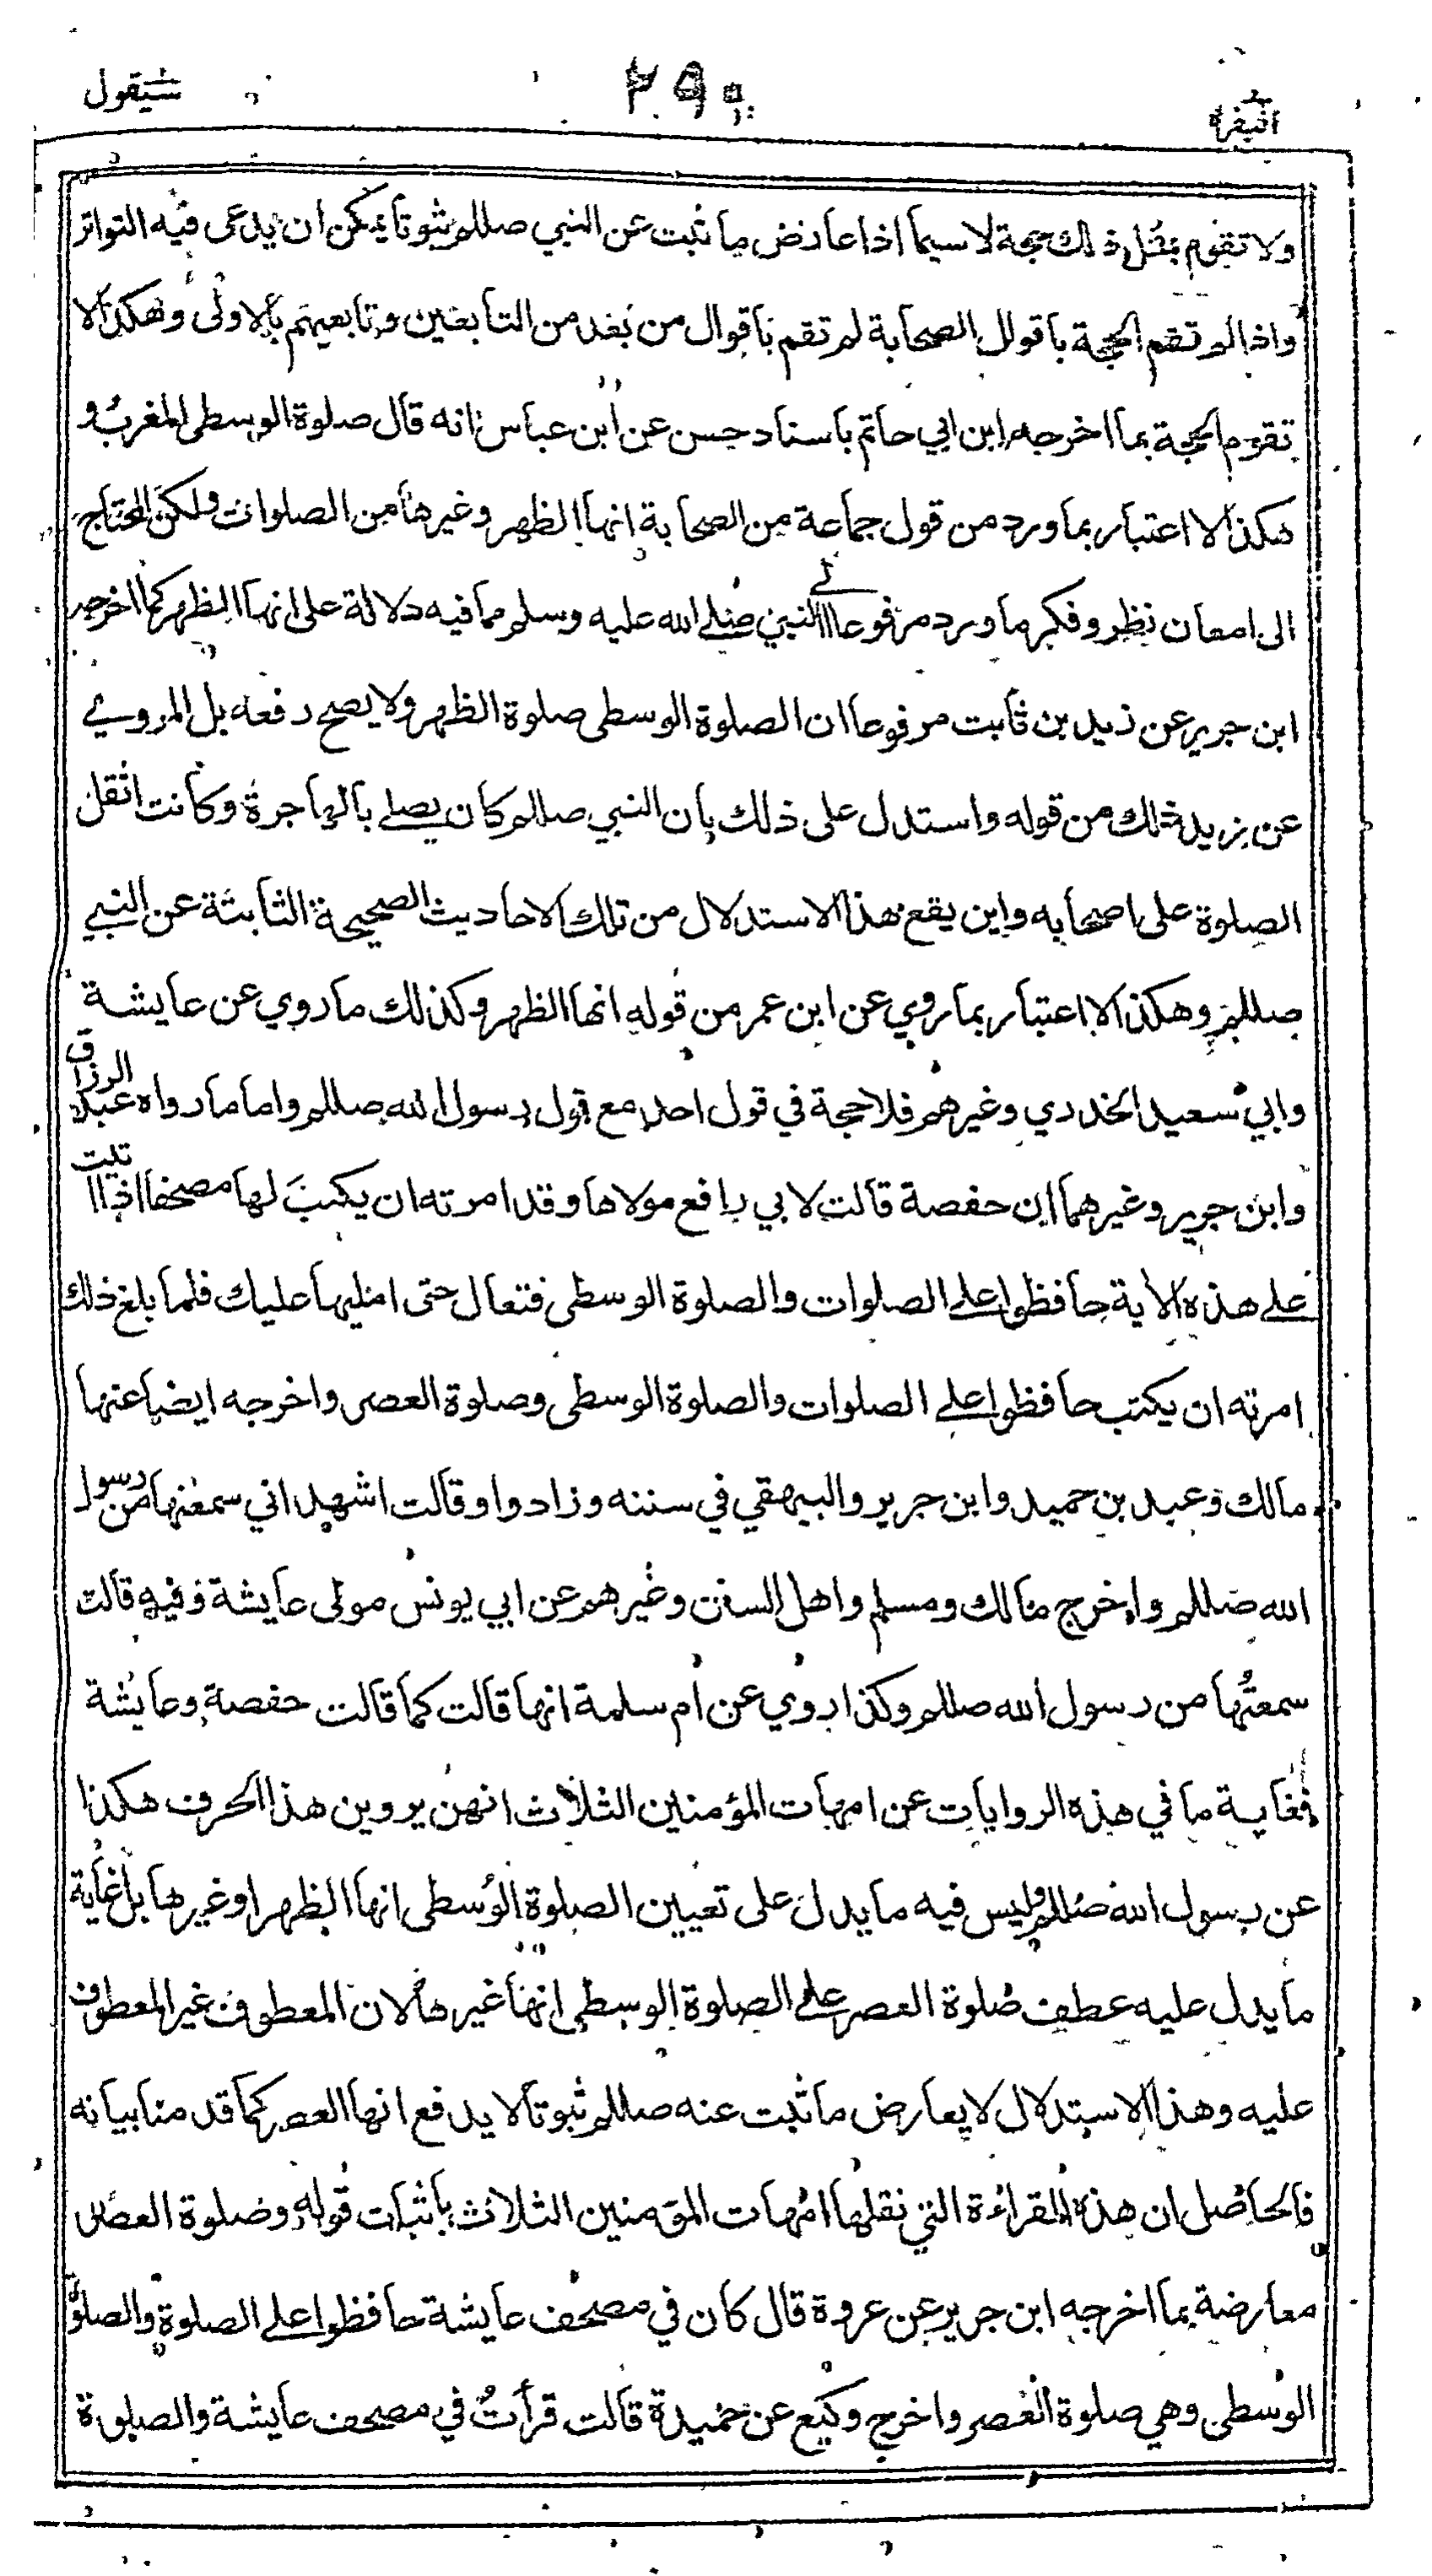 البقرة ٢٩٠ سيقول
ولا تقوم بمثل ذلك حجة لا سيما اذا عارض ما ثبت عن النبي صللم ثبوتا يمكن ان يدعى فيه التواتر
واذا لم تقم الحجة باقوال الصحابة لم تقم باقوال من بعد من التابعين وتابعيهم بالاولى وهكذا لا
تقوم الحجة بما اخرجه ابن ابي حاتم باسناد حسن عن ابن عباس انه قال صلوة الوسطى المغرب و
هكذا لا اعتبار بما ورد من قول جماعة من الصحابة انها الظهر وغيرها من الصلوات ولكن المحتاج
الى امعان نظر وفكر ما ورد مرفوعا الى النبي صلى الله عليه وسلم مما فيه دلالة على انها الظهر كما اخرجه
ابن جرير عن زيد بن ثابت مرفوعا ان الصلوة الوسطى صلوة الظهر ولا يصح رفعه بل المروي
عن زيد ذلك من قوله واستدل على ذلك بان النبي صللم كان يصلي بالهاجرة وكانت اثقل
الصلوة على اصحابه واين يقع هذا الاستدلال من تلك الاحاديث الصحيحة الثابتة عن النبي
صللم وهكذا لا اعتبار بما روي عن ابن عمر من قوله انها الظهر وكذلك ما روي عن عايشة
وابي سعيد الخدري وغيرهم فلا حجة في قول احد مع قول رسول الله صللم واما ما رواه عبد الرزاق
وابن جرير وغيرهما ان حفصة قالت لابي رافع مولاها وقد امرته ان يكتب لها مصحفا اذا اتيت
على هذه الاية حافظوا على الصلوات والصلوة الوسطى فتعال حتى امليها عليك فلما بلغ ذلك
امرته ان يكتب حافظوا على الصلوات والصلوة الوسطى وصلوة العصر واخرجه ايضا عنها
مالك وعبد بن حميد وابن جرير والبيهقي في سننه وزادوا وقالت اشهد اني سمعتها من رسول
الله صللم واخرج مالك ومسلم واهل السنن وغيرهم عن ابي يونس مولى عايشة وفيه قالت
سمعتها من رسول الله صللم وكذا روي عن ام سلمة انها قالت كما قالت حفصة وعايشة
فغاية ما في هذه الروايات عن امهات المؤمنين الثلاث انهن يروين هذا الحرف هكذا
عن رسول الله صللم وليس فيه ما يدل على تعيين الصلوة الوسطى انها الظهر او غيرها بل غاية
ما يدل عليه عطف صلوة العصر على الصلوة الوسطى انها غيرها لان المعطوف غير المعطوف
عليه وهذا الاستدلال لا يعارض ما ثبت عنه صللم ثبوتا لا يدفع انها العصر كما قد منا بيانه
فالحاصل ان هذه القراءة التي نقلها امهات المؤمنين الثلاث باثبات قوله وصلوة العصر
معارضة بما اخرجه ابن جرير عن عروة قال كان في مصحف عايشة حافظوا على الصلوة والصلوة
الوسطى وهي صلوة العصر واخرج وكيع عن حميدة قالت قرأت في مصحف عايشة والصلوة